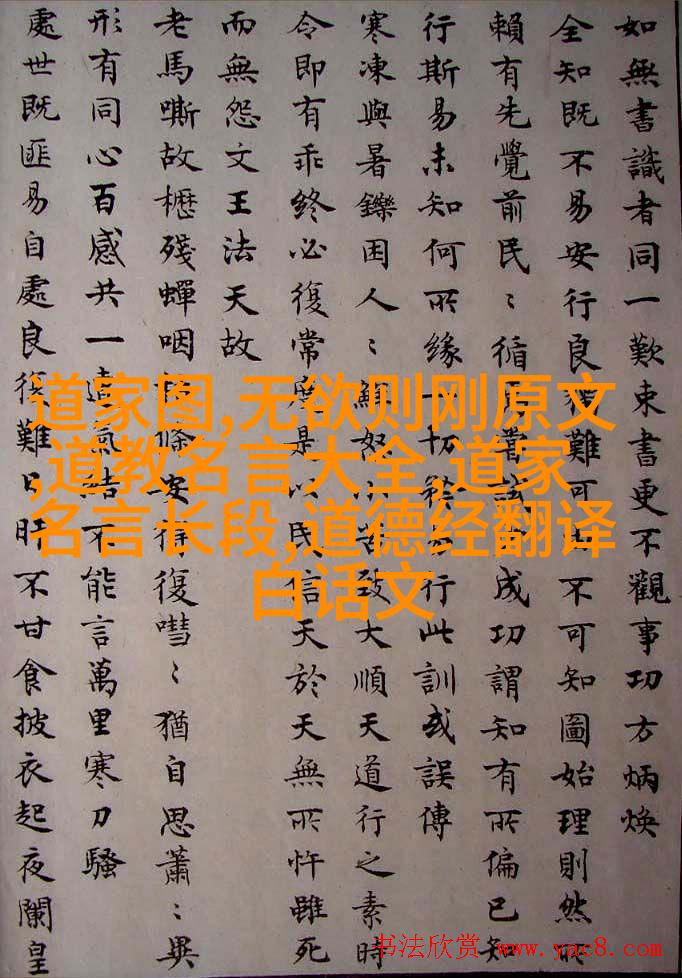 如無書識者同一歎束書更不觀事功方炳煥
全知既不易安行良難可不可知圖始理則然所
賴有先覺前民〻循嘗試成功謂知有所偏已知
行斯易未知何所緣一切行此訓或誤傳
寒凍與暑鑠困人〻鮮怒以致大順天道行之素時
令即有乖終必復常度是以民信天於天無所忤雖死
而無怨文王法天故
老馬嘶故櫪殘蟬咽條安得復嘒〻猶自思蕭〻異
形有同心百感共一氣結不能言萬里寒刀騷
處世既匪易自處良復難時不甘食披衣起夜闌皇
道家图,无欲则刚原文
,道教名言大全,道家
名言长段,道德经翻译
白话文
书法欣赏 www.yac8.com